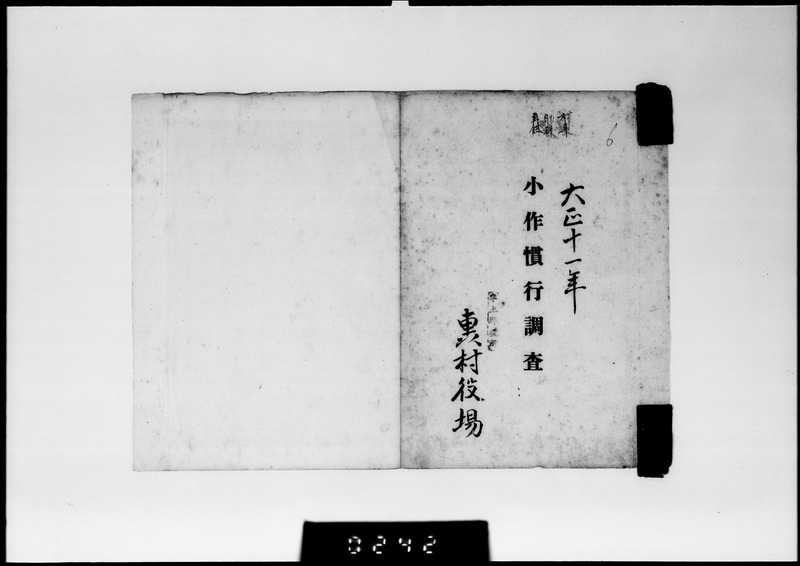 6
大正十一年
小作慣行調査
村役場
0242